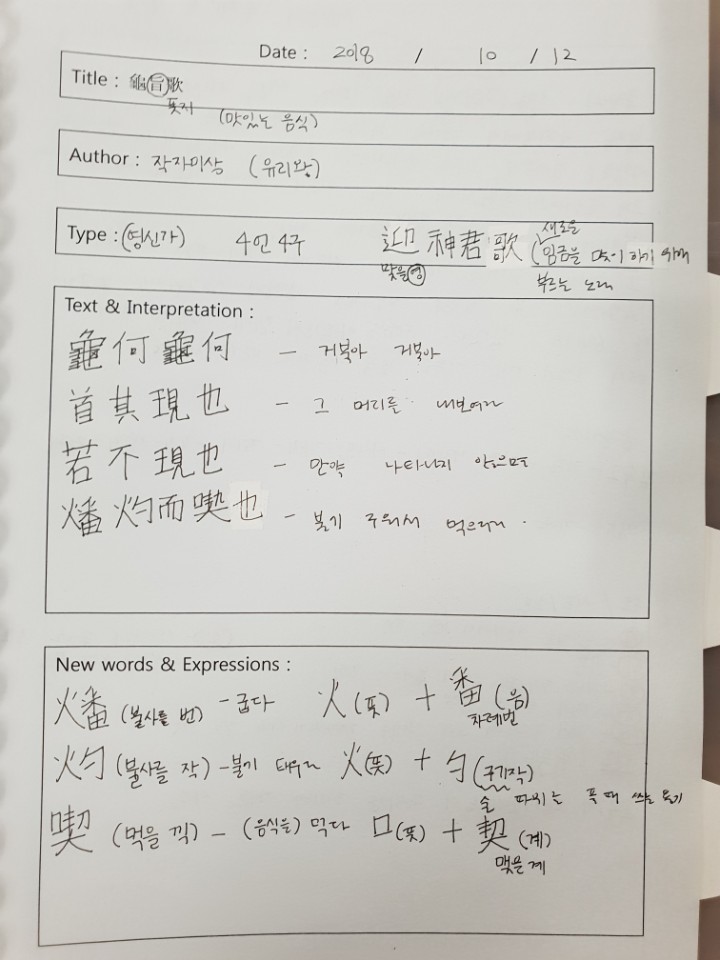 Date : 2018 / 10 / 12
Title : 龜旨歌
뜻지 (맛있는 음식)
Author : 작자미상 (유리왕)
Type : (영신가) 4언 4구 迎神君歌 (새로운 임금을 맞이 하기 위해 부르는 노래
맞을 영
Text & Interpretation :
龜何龜何 - 거북아 거북아
首其現也 - 그 머리를 내보여라
若不現也 - 만약 나타나지 않으면
燔灼而喫也 - 불기 구워서 먹으리라.
New words & Expressions :
燔 (불사를 번) - 굽다 火 (뜻) + 番 (음)
차례번
灼 (불사를 작) - 불기 태우다 火 (뜻) + 勺 (구기작)
술 따위는 푹 때 쓰는 용기
喫 (먹을 끽) - (음식을) 먹다 口 (뜻) + 契 (계)
맺을 계